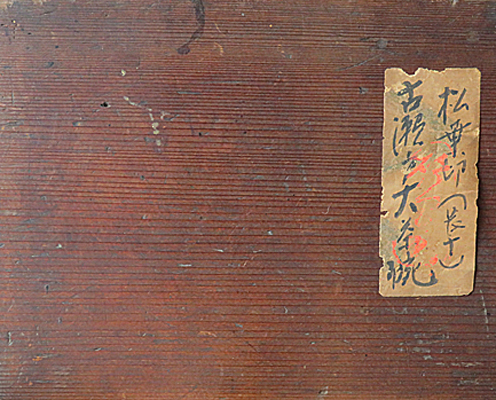 松華印(長十)
古瀬戸大茶碗